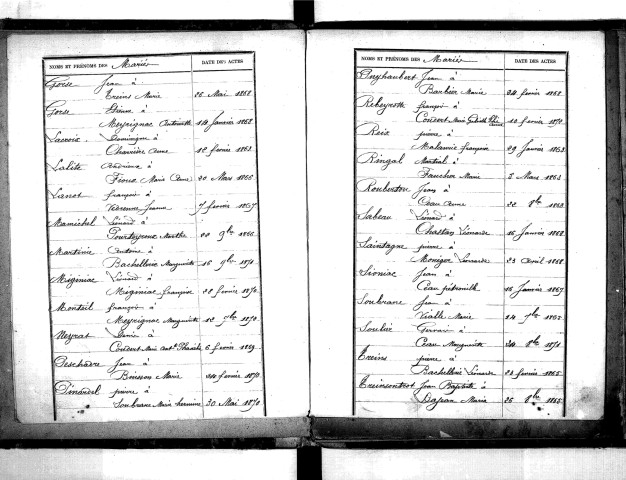 NOMS ET PRÉNOMS DES Mariés DATE DES ACTES
Gorse Jean à
Treins Marie 26 Mai 1868
Gorse Etienne à
Meyrignac Antoinette 14 Janvier 1862
Lacroix Dominique à
Chauvière Anne 12 février 1863
Lalité à
Marie Anne 20 Mars 1866
Lanot françois à
Jeanne 7 février 1867
Mamichel Léonard à
Pourteyroux Marthe 9bre 1866
Martinie Antoine à
Bachellerie Marguerite 16 9bre 1871
Miginiac Léonard à
Miginiac françoise 22 février 1870
Monteil françois à
Meyrignac Marguerite 12 7bre 1870
Neyrat Denis à
Marie 6 février 1869
Peschadre Jean à
Buisson Marie 24 février 1870
pierre à
Soubrane Marie hermine 30 Mai 1870
NOMS ET PRÉNOMS DES Mariés DATE DES ACTES
Puyhaubert Jean à
Barbier Marie 24 février 1862
Rebeyrotte françois à
Marie 10 février 1870
pierre à
françoise 29 Janvier 1863
Ringal Martial à
Faucher Marie 2 Mars 1863
Rouberton Jean à
Ceau Anne 22 8bre 1868
Sabeau Léonard à
Chastan Léonarde 16 Janvier 1862
Saintagne pierre à
Monéger Léonarde 23 Avril 1868
Simiac Jean à
Ceau pétronille 16 Janvier 1867
Soubrane Jean à
Vialle Marie 14 7bre 1865
Soulié Germain à
Ceau Marguerite 24 8bre 1871
Treins pierre à
Bachellerie Léonarde 23 février 1865
Treinsoutrot Jean Baptiste à
Dajean Marie 25 8bre 1865